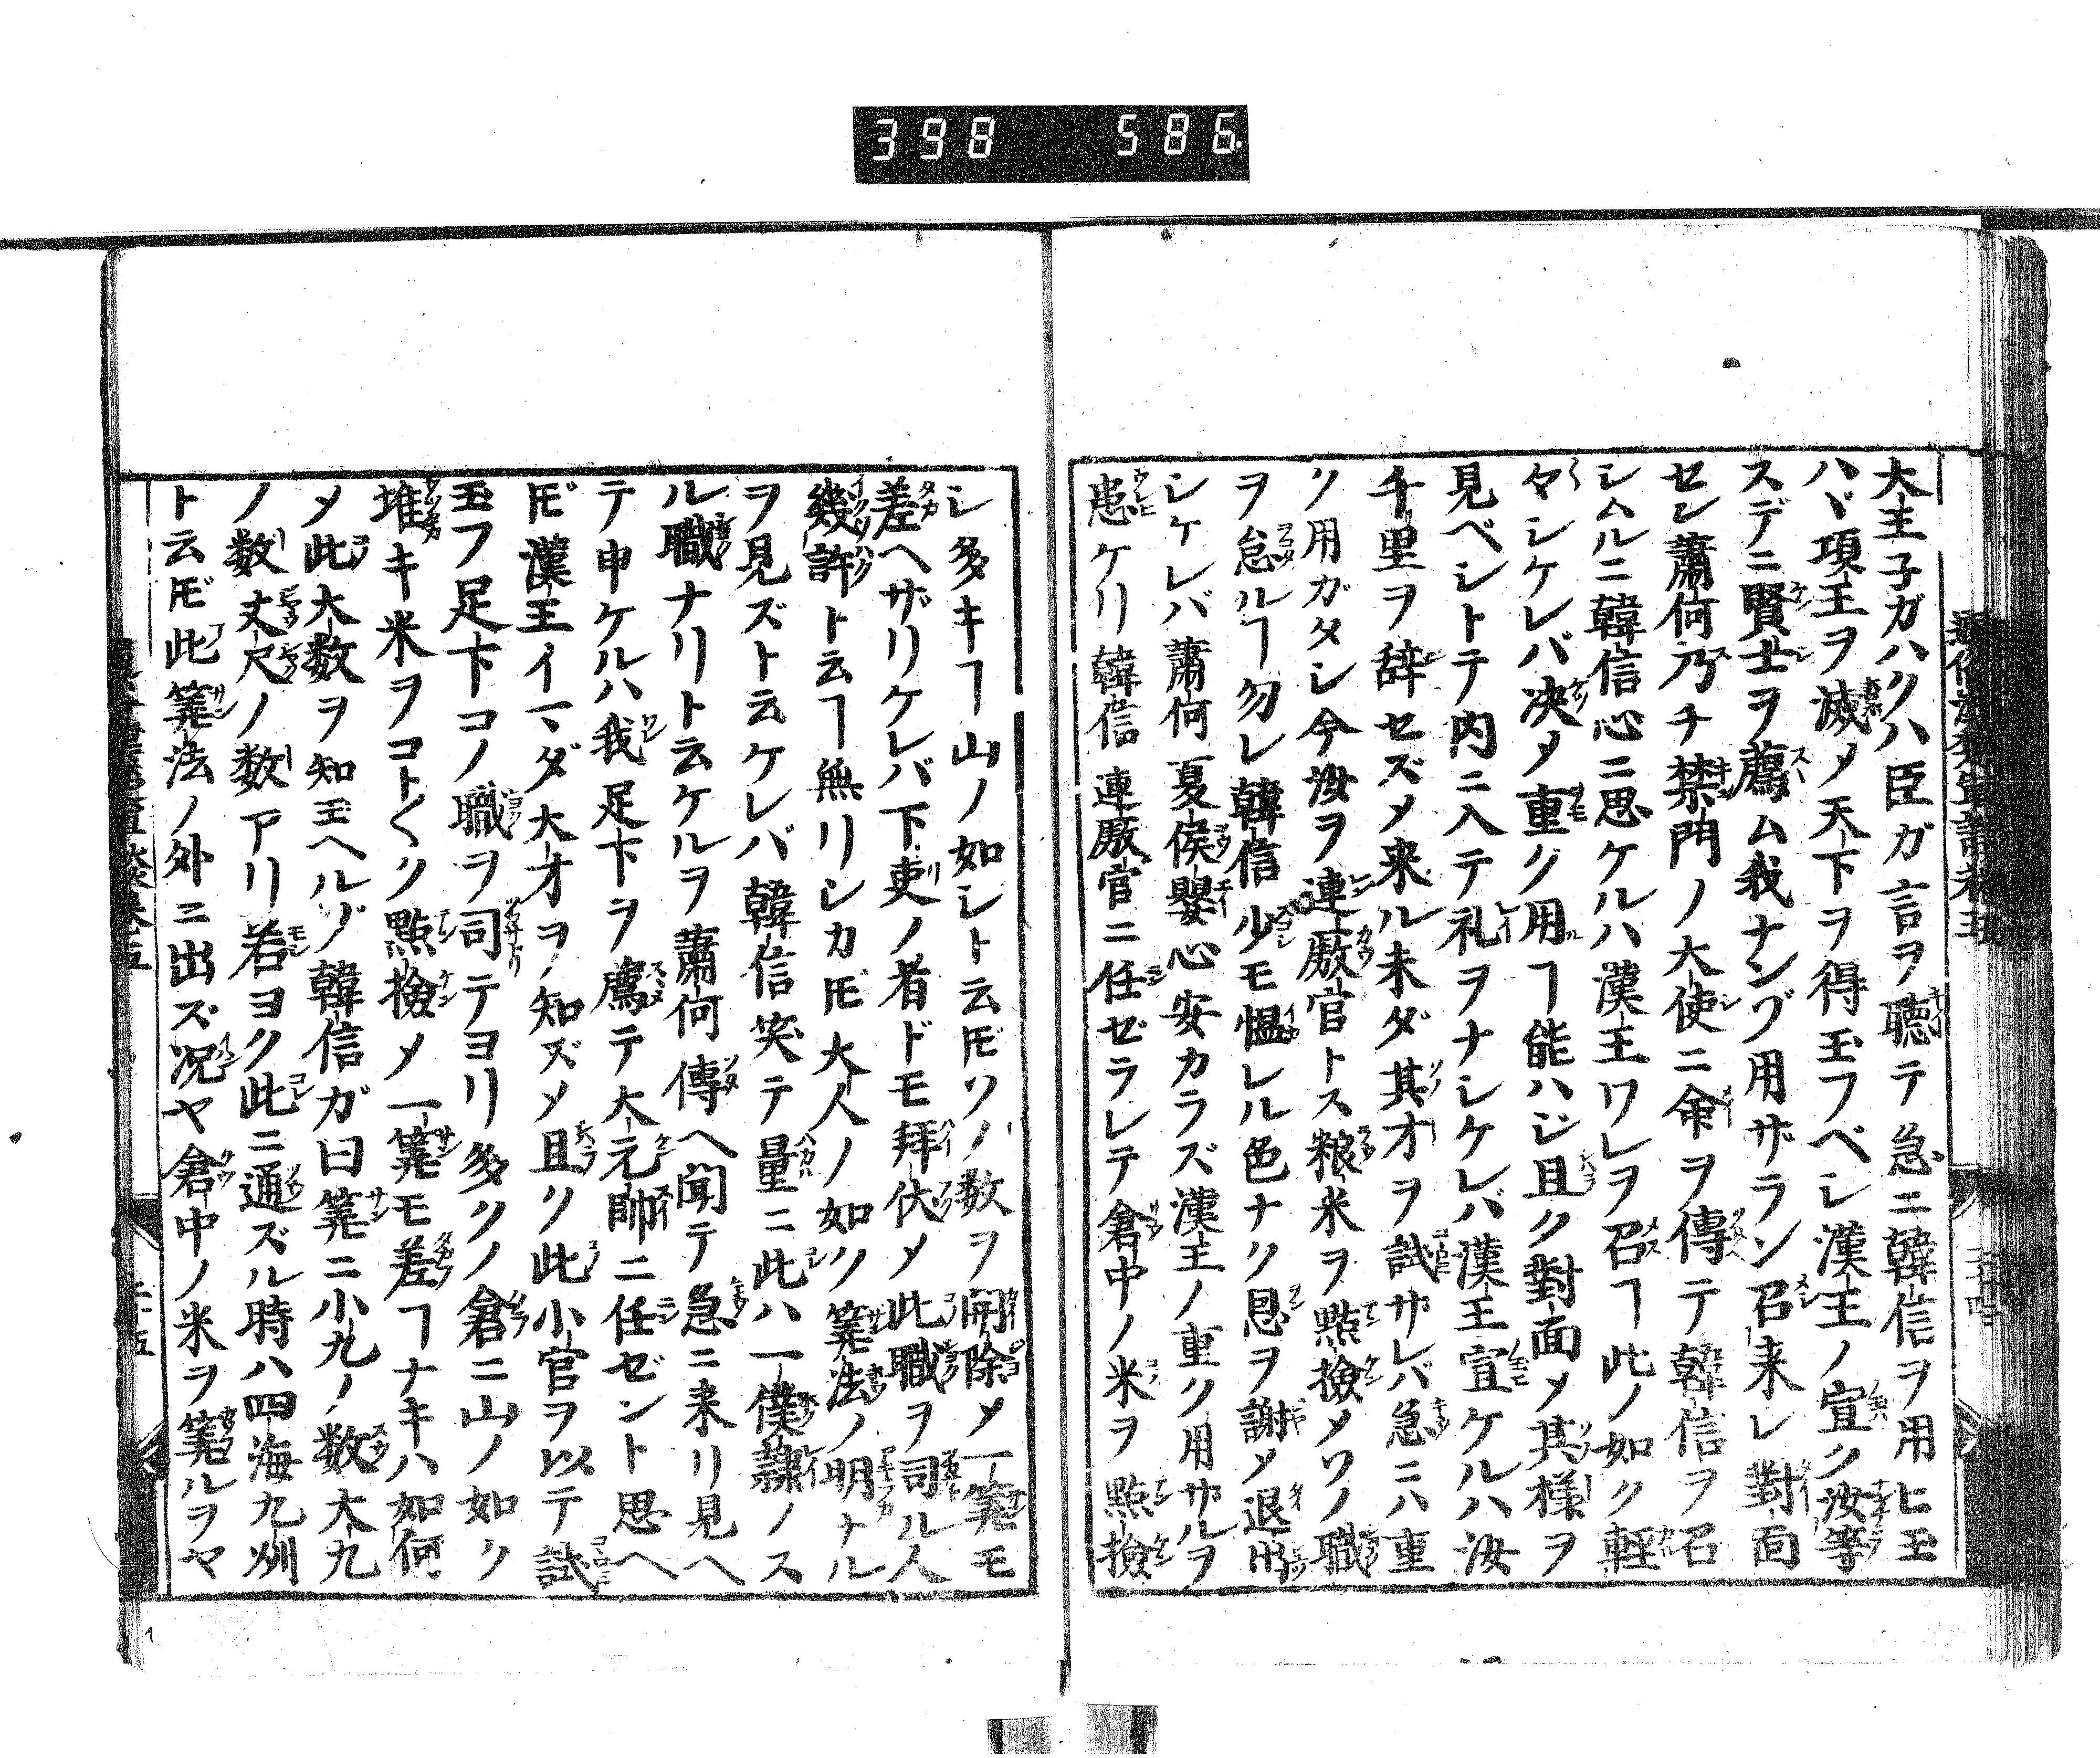 398 586
大王子ガハクハ臣ガ言ヲ聴テ急ニ韓信ヲ用ヒ玉
ハヾ項王ヲ滅メ天下ヲ得玉フベシ漢王ノ宣ク汝等
スデニ賢士ヲ薦ム我ナンゾ用ザラン召来レ對面
セン蕭何乃チ禁門ノ大使ニ命ヲ傳テ韓信ヲ召
シムルニ韓信心ニ思ケルハ漢王ワレヲ召ヿ此ノ如ク輕
々シケレバ决メ重グ用ヿ能ハジ且ク對面メ其様ヲ
見ベシトテ内ニ入テ礼ヲナシケレバ漢王宣ケルハ汝
千里ヲ辞セズメ来ル未ダ其才ヲ試ザレバ急ニハ重
ク用ガタシ今汝ヲ連厫官トス粮米ヲ點撿メソノ職
ヲ怠ルヿ勿レ韓信少モ慍レル色ナク恩ヲ謝メ退出
シケレバ蕭何夏侯嬰心安カラズ漢王ノ重ク用ザルヲ
患ケリ韓信連厫官ニ任ゼラレテ倉中ノ米ヲ點撿
シ多キヿ山ノ如シト云𪜈ソノ数ヲ開除メ一筭モ
差ヘザリケレバ下吏ノ者ドモ拜伏メ此職ヲ司ル人
幾許ト云ヿ無リシカ𪜈大人ノ如ク筭法ノ明ナル
ヲ見ズト云ケレバ韓信笑テ量ニ此ハ一僕隷ノス
ル職ナリト云ケルヲ蕭何傳ヘ聞テ急ニ来リ見ヘ
テ申ケルハ我足下ヲ薦テ大元帥ニ任ゼント思ヘ
𪜈漢王イマダ大才ヲ知ズメ且ク此小官ヲ以テ試
玉フ足下コノ職ヲ司テヨリ多クノ倉ニ山ノ如ク
堆キ米ヲコト〱ク點撿メ一筭モ差ヿナキハ如何
メ此大数ヲ知玉ヘルゾ韓信ガ曰筭ニ小九ノ数大九
ノ数丈尺ノ数アリ若ヨク此ニ通ズル時ハ四海九州
ト云𪜈此筭法ノ外ニ出ズ况ヤ倉中ノ米ヲ筭ルヲヤ